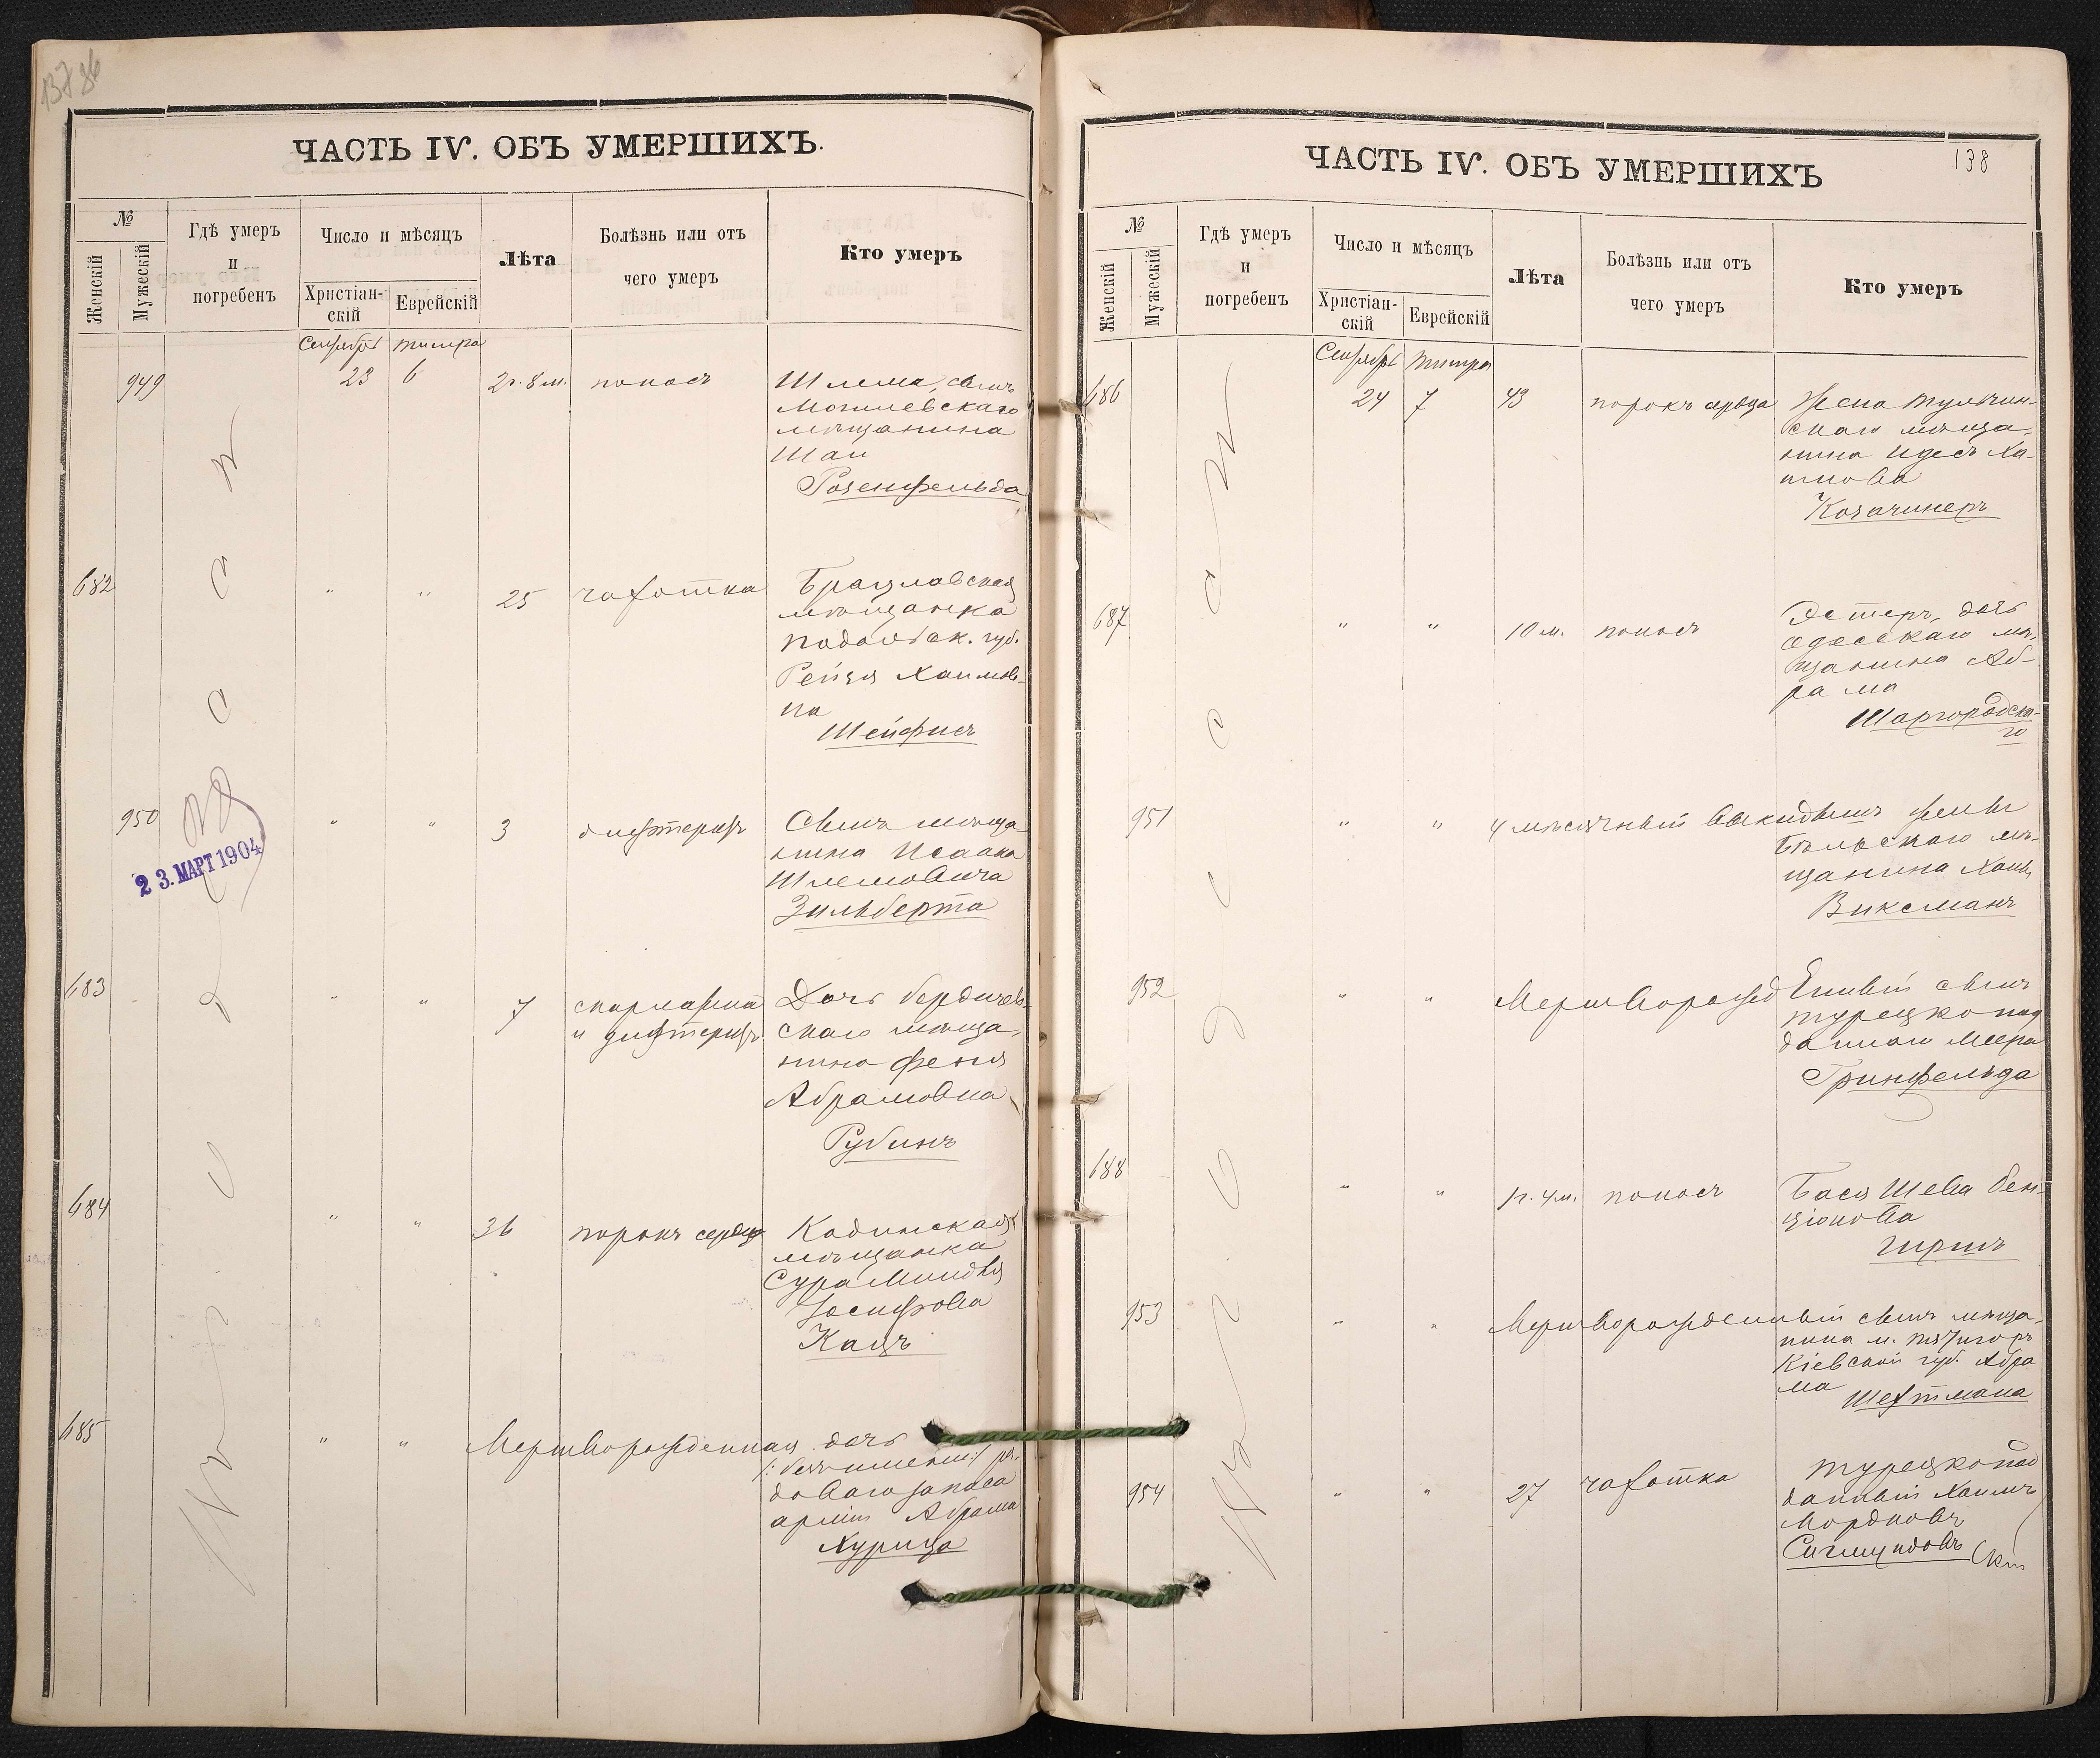 137
ЧАСТЬ IV. ОБЪ УМЕРШИХЪ.
№
Женскій
Мужескій
Гдѣ умеръ
и
погребенъ
Число и мѣсяцъ
Христіан-
скій
Еврейскій
Лѣта
Болѣзнь или отъ
чего умеръ
Кто умеръ
Сентябрь тишра
949 23 6 2 г. 8 м. поносъ Шлема, сынъ
Могилевскаго
мѣщанина
Шаи
Розенфельда
682 " " 25 чахотка Брацлавская
мѣщанка
Подольск. губ.
Рейзя Хаимов-
на
Шейфисъ
950 " " 3 дифтеритъ Сынъ мѣща
нина Исаака
Шлемовича
Зильберта
23. МАРТ 1904
683 " " 7 скарлатина Дочь бердичев-
и дифтеритъ скаго мѣща-
нина Феня
Абрамовна
Рубинъ
684 " " 36 порокъ сердца Кодымская
мѣщанка
Сура Миндля
Іосифова
Кацъ
685 " " Мертворожденная дочь
/: безъ имени :/ ря-
доваго запаса
арміи Абрама
Хурица
въ г. Одессѣ
138
ЧАСТЬ IV. ОБЪ УМЕРШИХЪ
№
Женскій
Мужескій
Гдѣ умеръ
и
погребенъ
Число и мѣсяцъ
Христіан-
скій
Еврейскій
Лѣта
Болѣзнь или отъ
чего умеръ
Кто умеръ
Сентябрь тишра
686 24 7 43 порокъ сердца Жена тульчин-
скаго мѣща-
нина Идесъ Ха-
имова
Козачинеръ
687 " " 10 м. поносъ Эстеръ, дочь
одесскаго мѣ-
щанина Аб-
рама
Шаргородска-
го
951 " " 4 мѣсячный выкидышъ
Бѣльскаго мѣ-
щанина
Виксманъ
952 " " Мертворожденный сынъ
турецкопод
даннаго Меера
Гринфельда
688 " " 1 г. 4 м. поносъ Бася Шева Бен-
ціонова
Гиршъ
953 " " Мертворожденный сынъ мѣща-
нина м.
Кіевской губ. Абра
ма
Шехтмана
954 " " 27 чахотка турецкопод
данный Хаимъ
Мордковъ
Сигмундовъ
въ г. Одессѣ